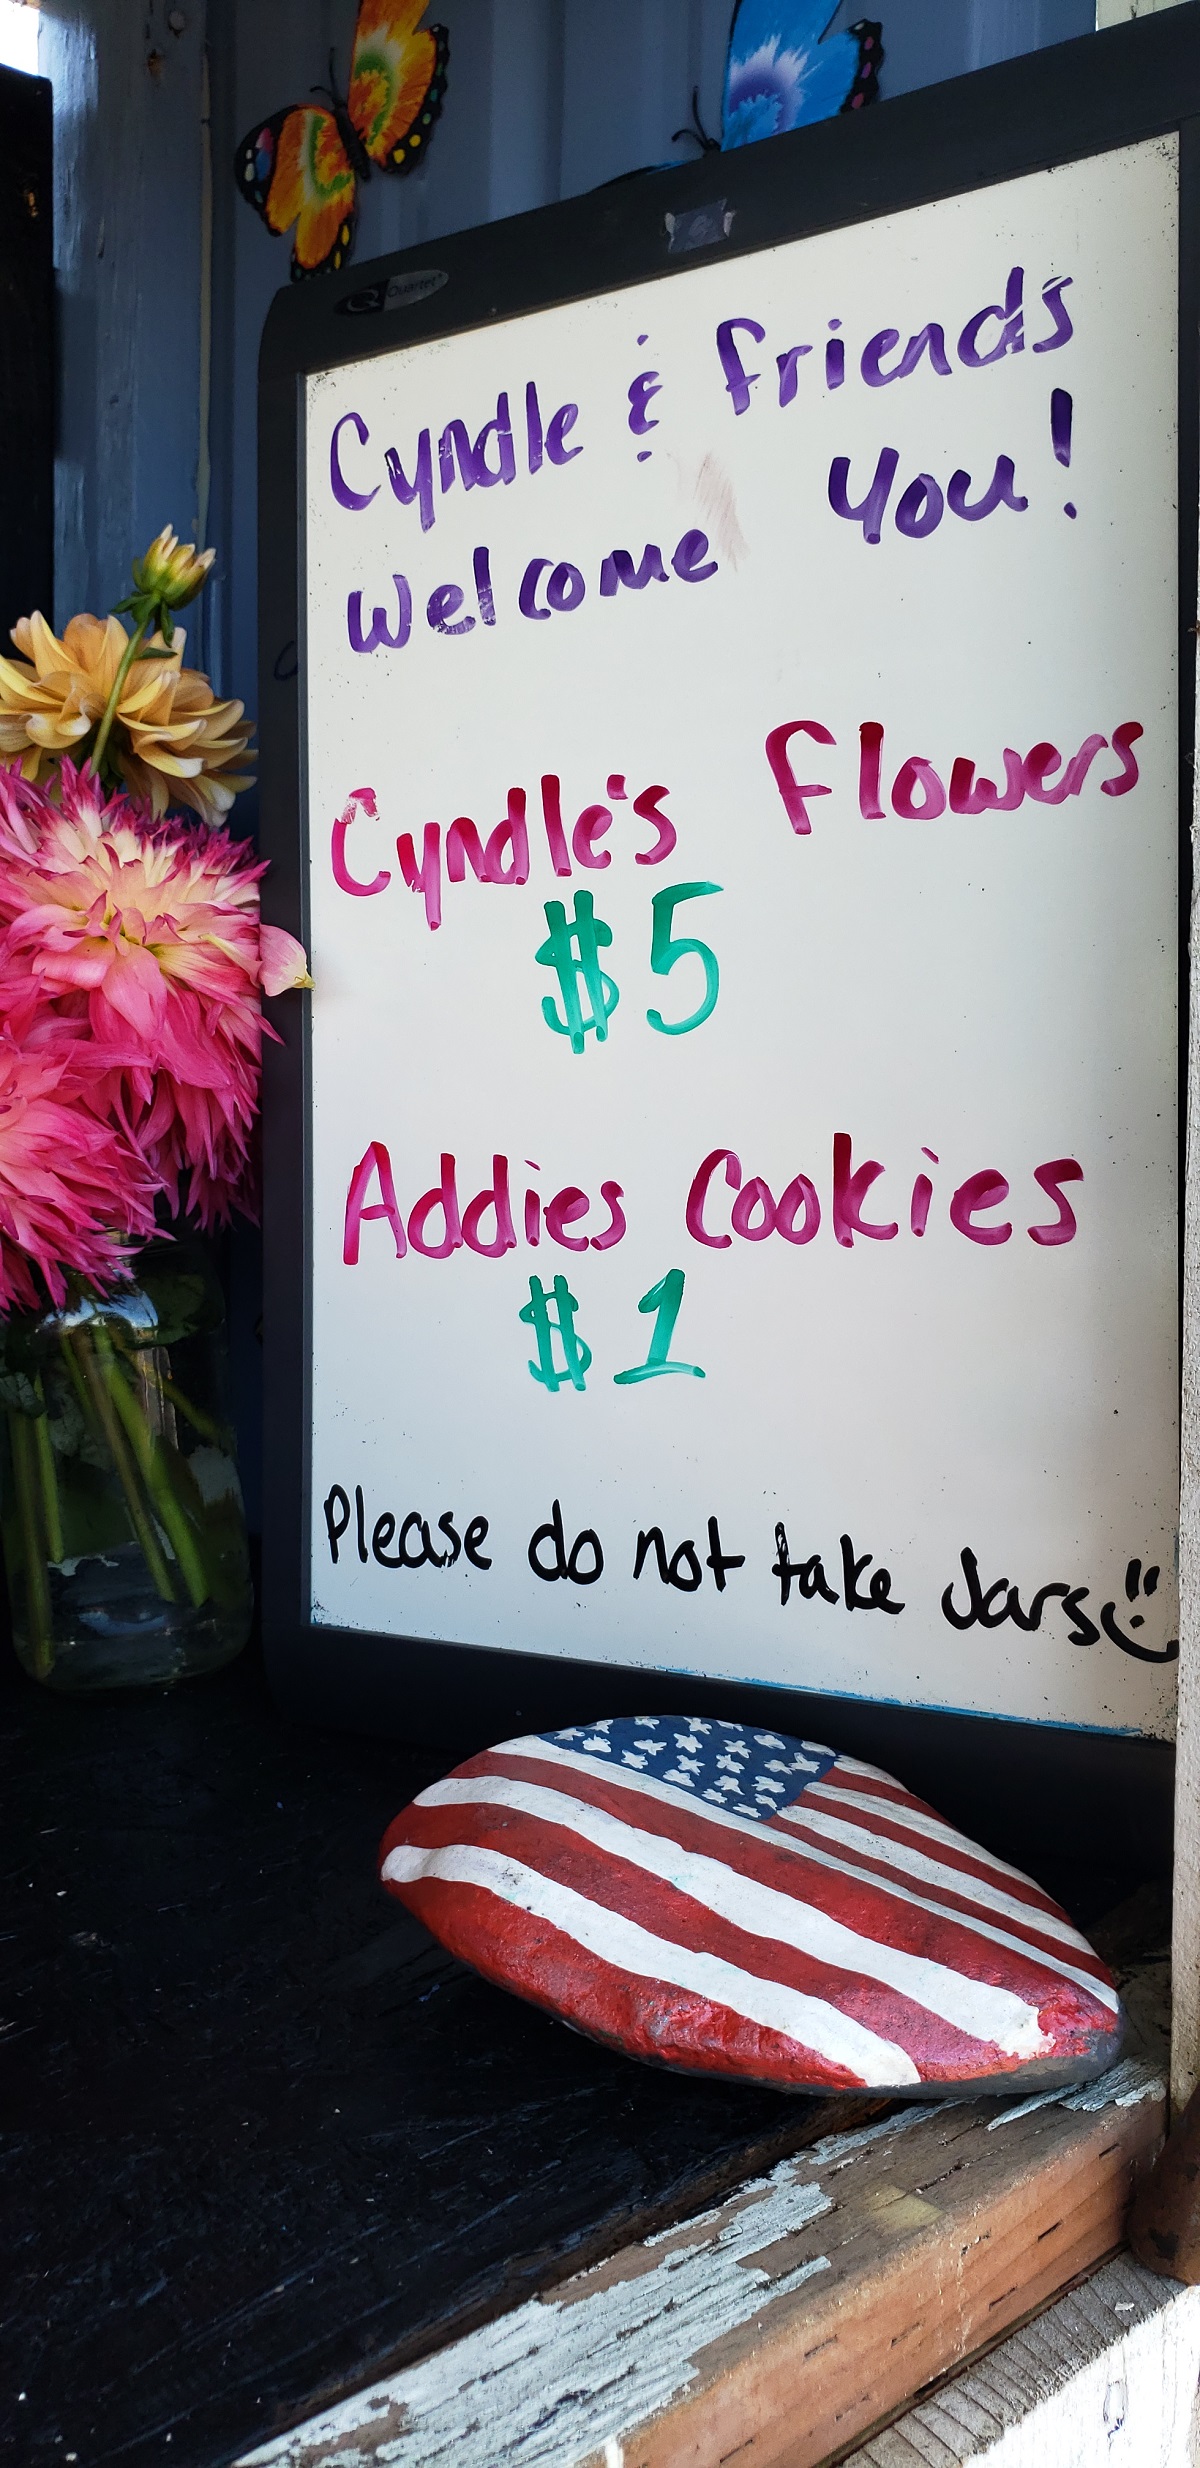 Quartet
Cyndle & friends
Welcome You!
Cyndle's Flowers
$5
Addies Cookies
$1
Please do not take Jars